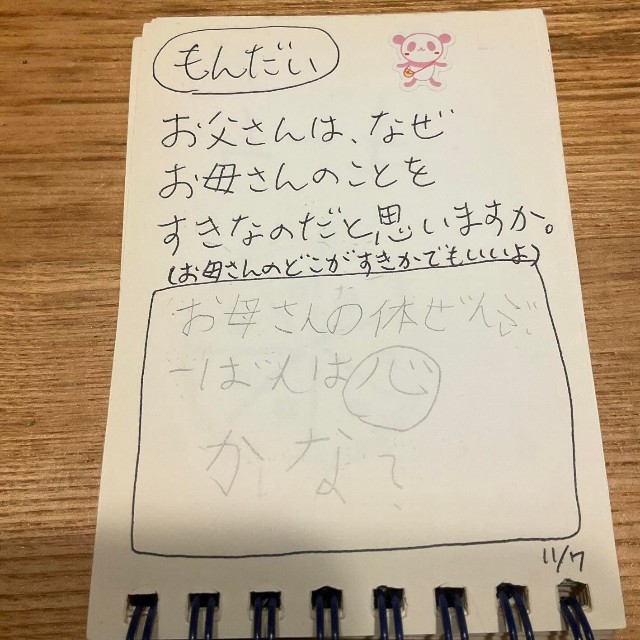 もんだい
お父さんは、なぜ
お母さんのことを
すきなのだと思いますか。
(お母さんのどこがすきかでもいいよ)
お母さんの体ぜんぶ
一ばんは心
かな?
11/7